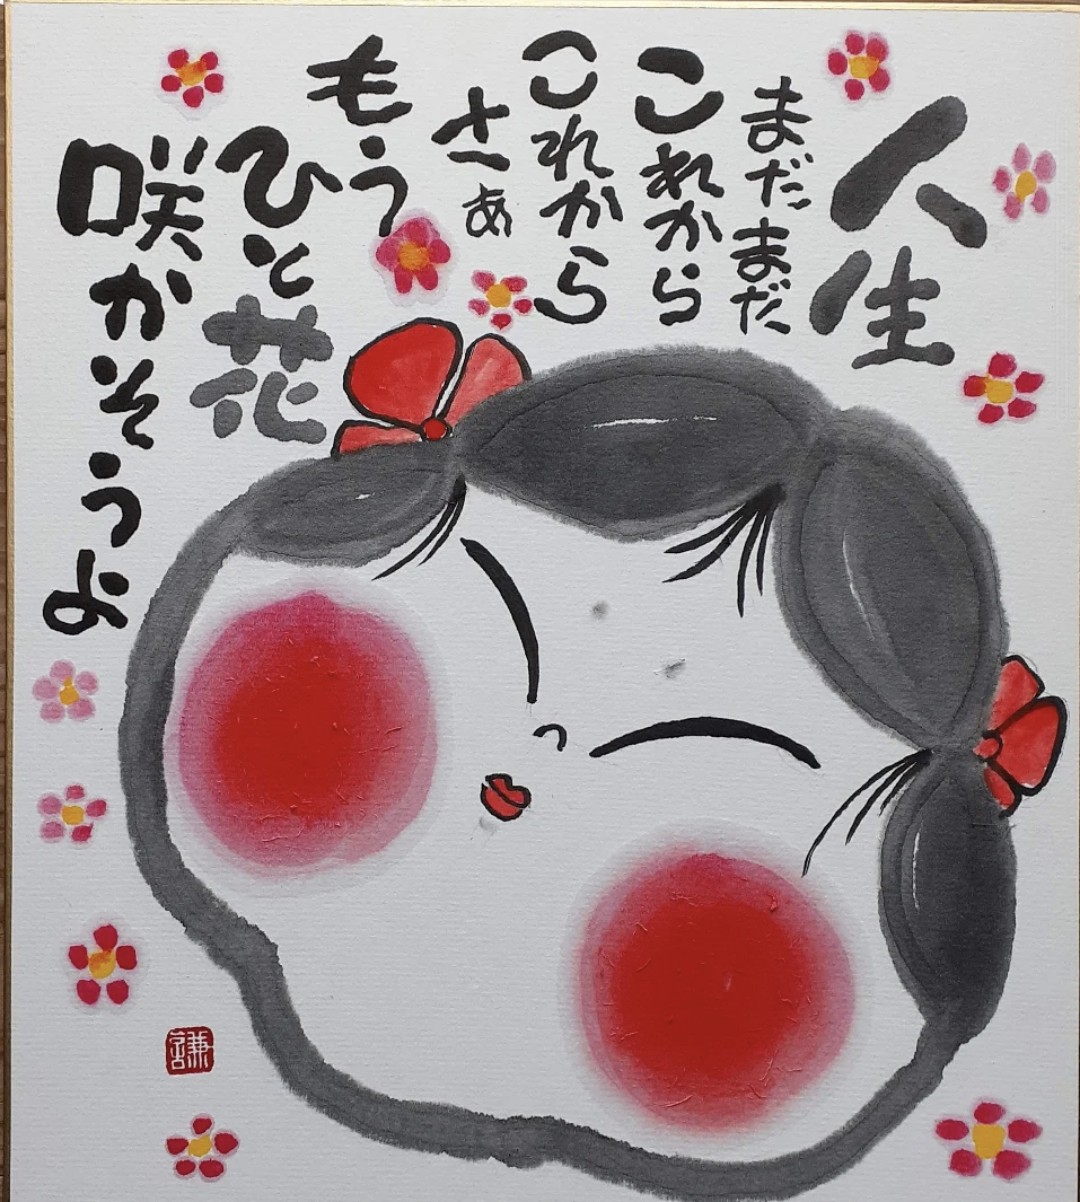 人生
まだまだ
これから
これから
さぁ
もう
ひと花
咲かそうよ
謙